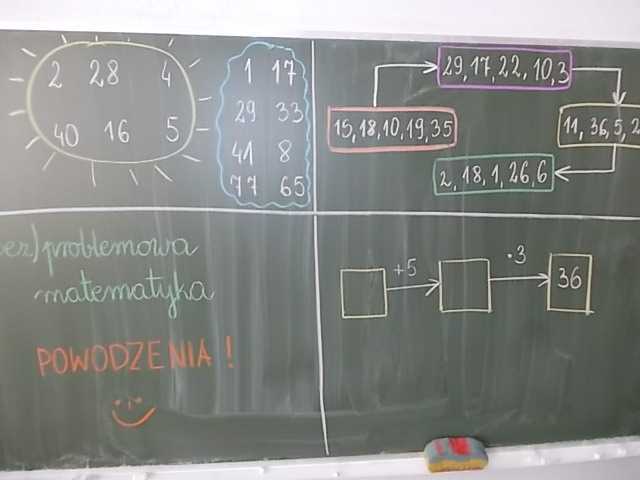 2 28 4
40 16 5
1 17
29 33
41 8
77 65
29, 17, 22, 10, 3
15, 18, 10, 19, 35
11, 36, 5, 2
2, 18, 1, 26, 6
ez) problemowa
matematyka
POWODZENIA!
+5 ·3
36